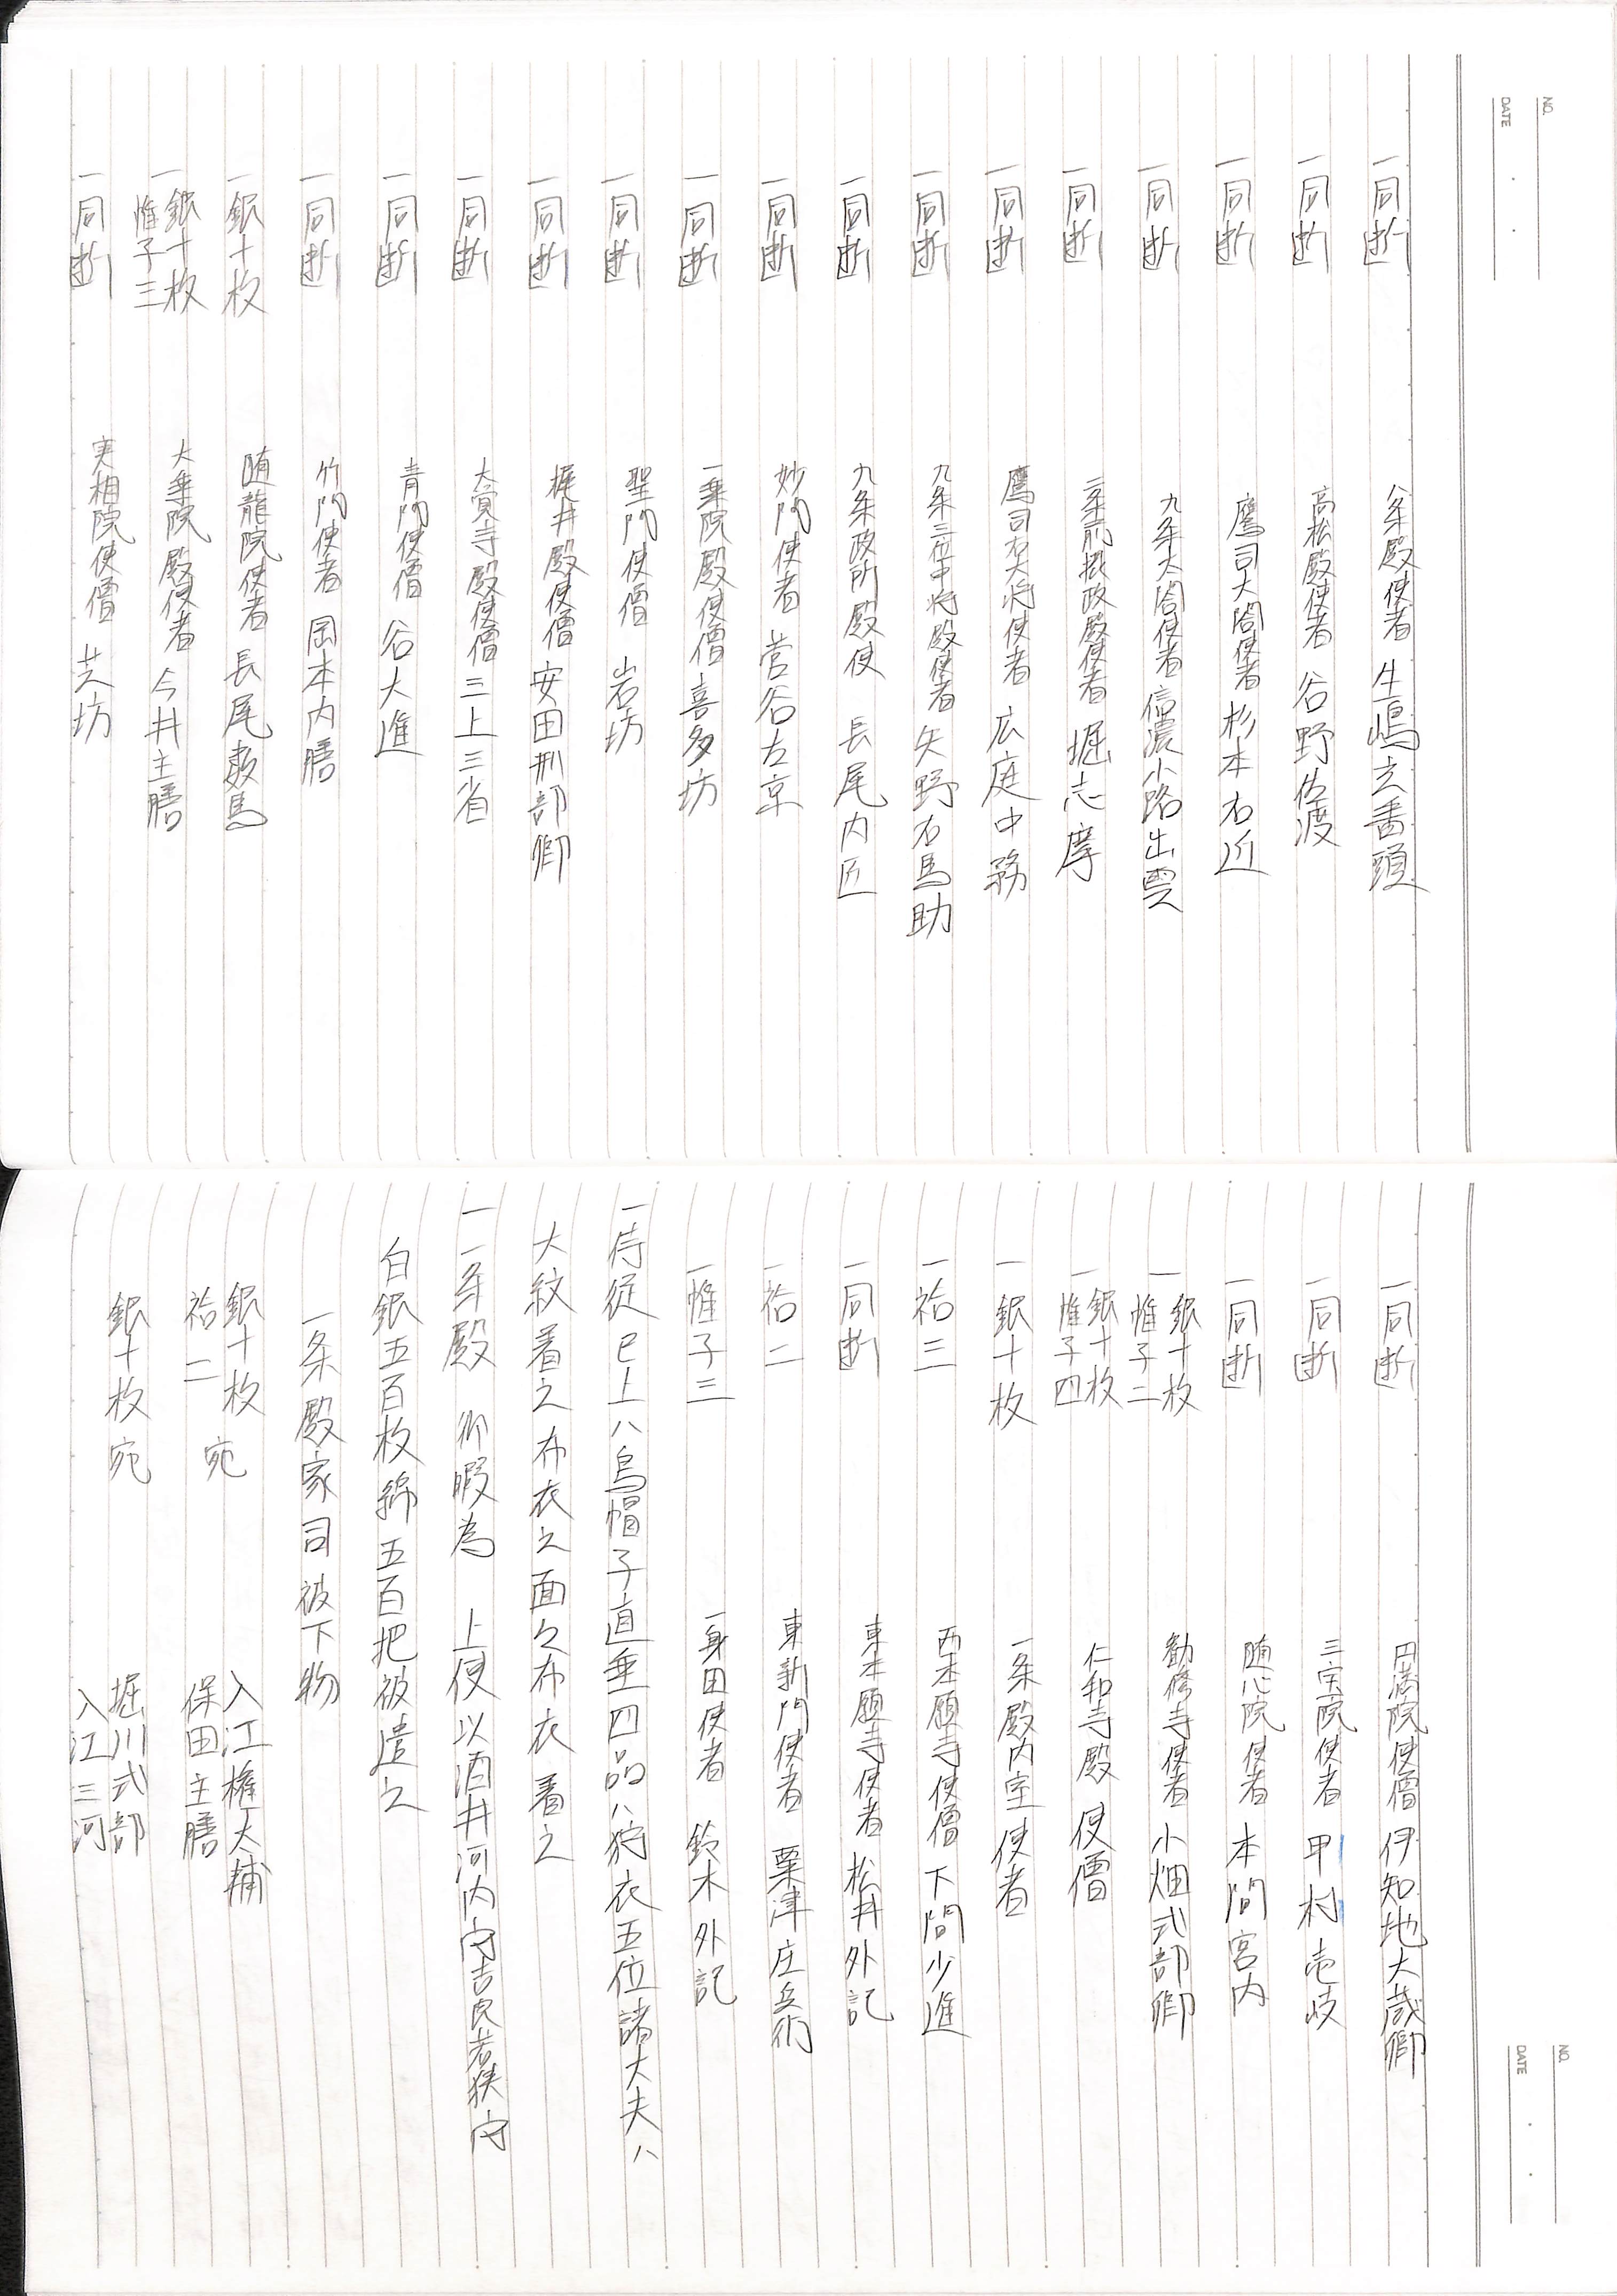 NO.
DATE
一同断 八条殿使者 生嶋玄番頭
一同断 高松殿使者 谷野佐渡
一同断 鷹司大閤使者 杉本右近
一同断 九条大閤使者 信濃小路出雲
一同断 二条前摂政殿使者 堀志摩
一同断 鷹司右大将使者 広庭中務
一同断 九条三位中将殿使者 矢野右馬助
一同断 九条政所殿使 長尾内匠
一同断 妙門使者 菅谷左京
一同断 一乗院殿使僧 喜多坊
一同断 聖門使僧 岩坊
一同断 梶井殿使僧 安田刑部卿
一同断 大覚寺殿使僧 三上三省
一同断 青門使僧 谷大進
一同断 竹門使者 岡本内膳
一銀十枚 随龍院使者 長尾数馬
一銀十枚
帷子三 大乗院殿使者 今井主膳
一同断 実相院使僧 芝坊
NO.
DATE
一同断 円満院使僧 伊知地大蔵卿
一同断 三宝院使者 甲村壱岐
一同断 随心院使者 本間宮内
一銀十枚
帷子二 勧修寺使者 小畑式部卿
一銀十枚
帷子四 仁和寺殿 使僧
一銀十枚 一条殿内室使者
一袷三 西本願寺使僧 下間少進
一同断 東本願寺使者 松井外記
一袷二 東新門使者 粟津庄兵衛
一帷子三 一身田使者 鈴木外記
一侍従已上ハ烏帽子直垂四品ハ狩衣五位諸大夫ハ
大紋着之布衣之面々布衣着之
一一条殿 御暇為 上使以酒井河内守吉良若狭守
白銀五百枚綿五百把被遣之
一条殿家司被下物
銀十枚
袷二 宛 入江権大輔
保田主膳
銀十枚宛 堀川式部
入江三河